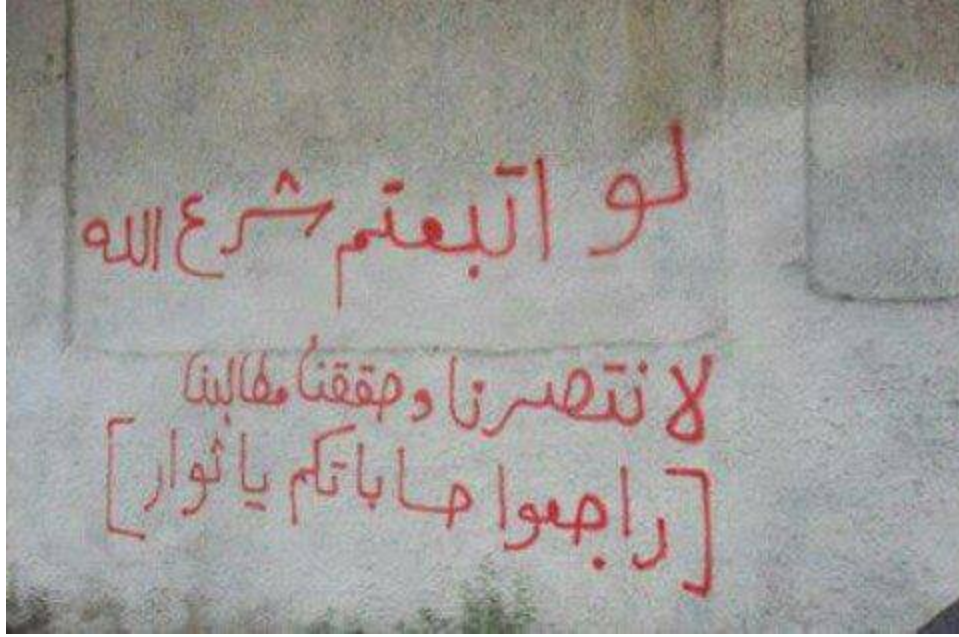 لو اتبعتم شرع الله
لا نتصرنا وحققنا مطالبنا
[راجعوا حساباتكم يا ثوار]